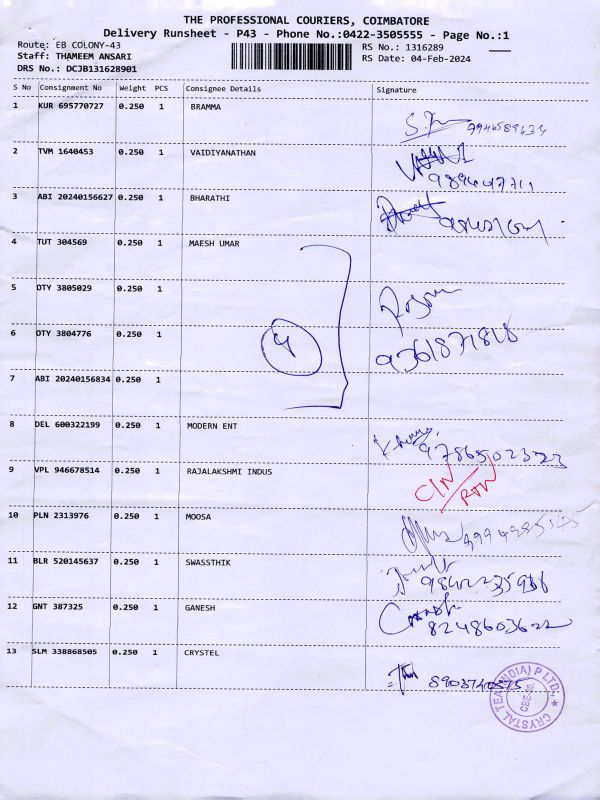 THE PROFESSIONAL COURIERS, COIMBATORE
Delivery Runsheet - P43 - Phone No.:0422-3505555 - Page No.:1
Route: EB COLONY-43
Staff: THAMEEM ANSARI
DRS No.: DCJB131628901
RS No.: 1316289
RS Date: 04-Feb-2024
S No Consignment No Weight PCS Consignee Details Signature
1 KUR 695770727 0.250 1 BRAMMA
2 TVM 1640453 0.250 1 VAIDIYANATHAN
3 ABI 20240156627 0.250 1 BHARATHI
4 TUT 304569 0.250 1 MAESH UMAR
5 OTY 3805029 0.250 1
6 OTY 3804776 0.250 1
4
9361871818
7 ABI 20240156834 0.250 1
8 DEL 600322199 0.250 1 MODERN ENT
9786502323
9 VPL 946678514 0.250 1 RAJALAKSHMI INDUS
10 PLN 2313976 0.250 1 MOOSA
11 BLR 520145637 0.250 1 SWASSTHIK
12 GNT 387325 0.250 1 GANESH
8248603622
13 SLM 338868505 0.250 1 CRYSTEL
8903740575
CRYSTAL TEA (INDIA) P LTD.,